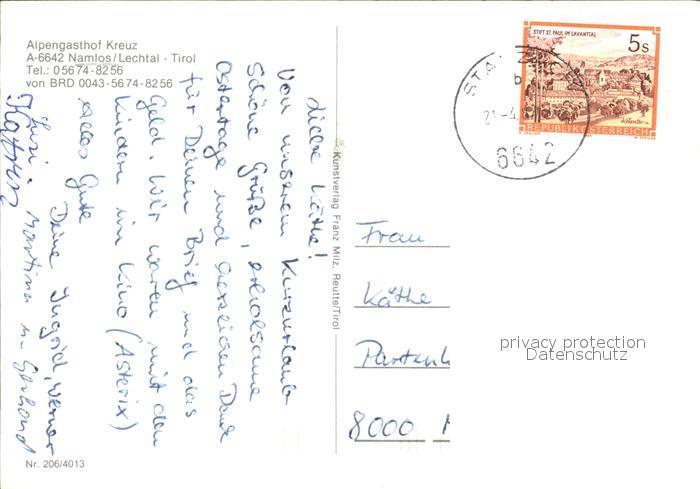 Alpengasthof Kreuz
A-6642 Namlos/Lechtal - Tirol
Tel.: 05674-8256
von BRD 0043-5674-8256
Liebe Käthe!
Von unserem Kurzurlaub
schöne Grüße, erholsame
Ostertage und herzlichen Dank
für Deinen Brief und das
Geld. Wir waren mit den
Kindern im Kino (Asterix)
Alles Gute
Deine Ingrid, Werner
Susi Martina u. Gerhard
Katrin
Nr. 206/4013
Kunstverlag Franz Milz, Reutte/Tirol
STIFT ST. PAUL IM LAVANTTAL
5s
REPUBLIK ÖSTERREICH
21-4
6642
Frau
Käthe
Partenk
8000
privacy protection
Datenschutz